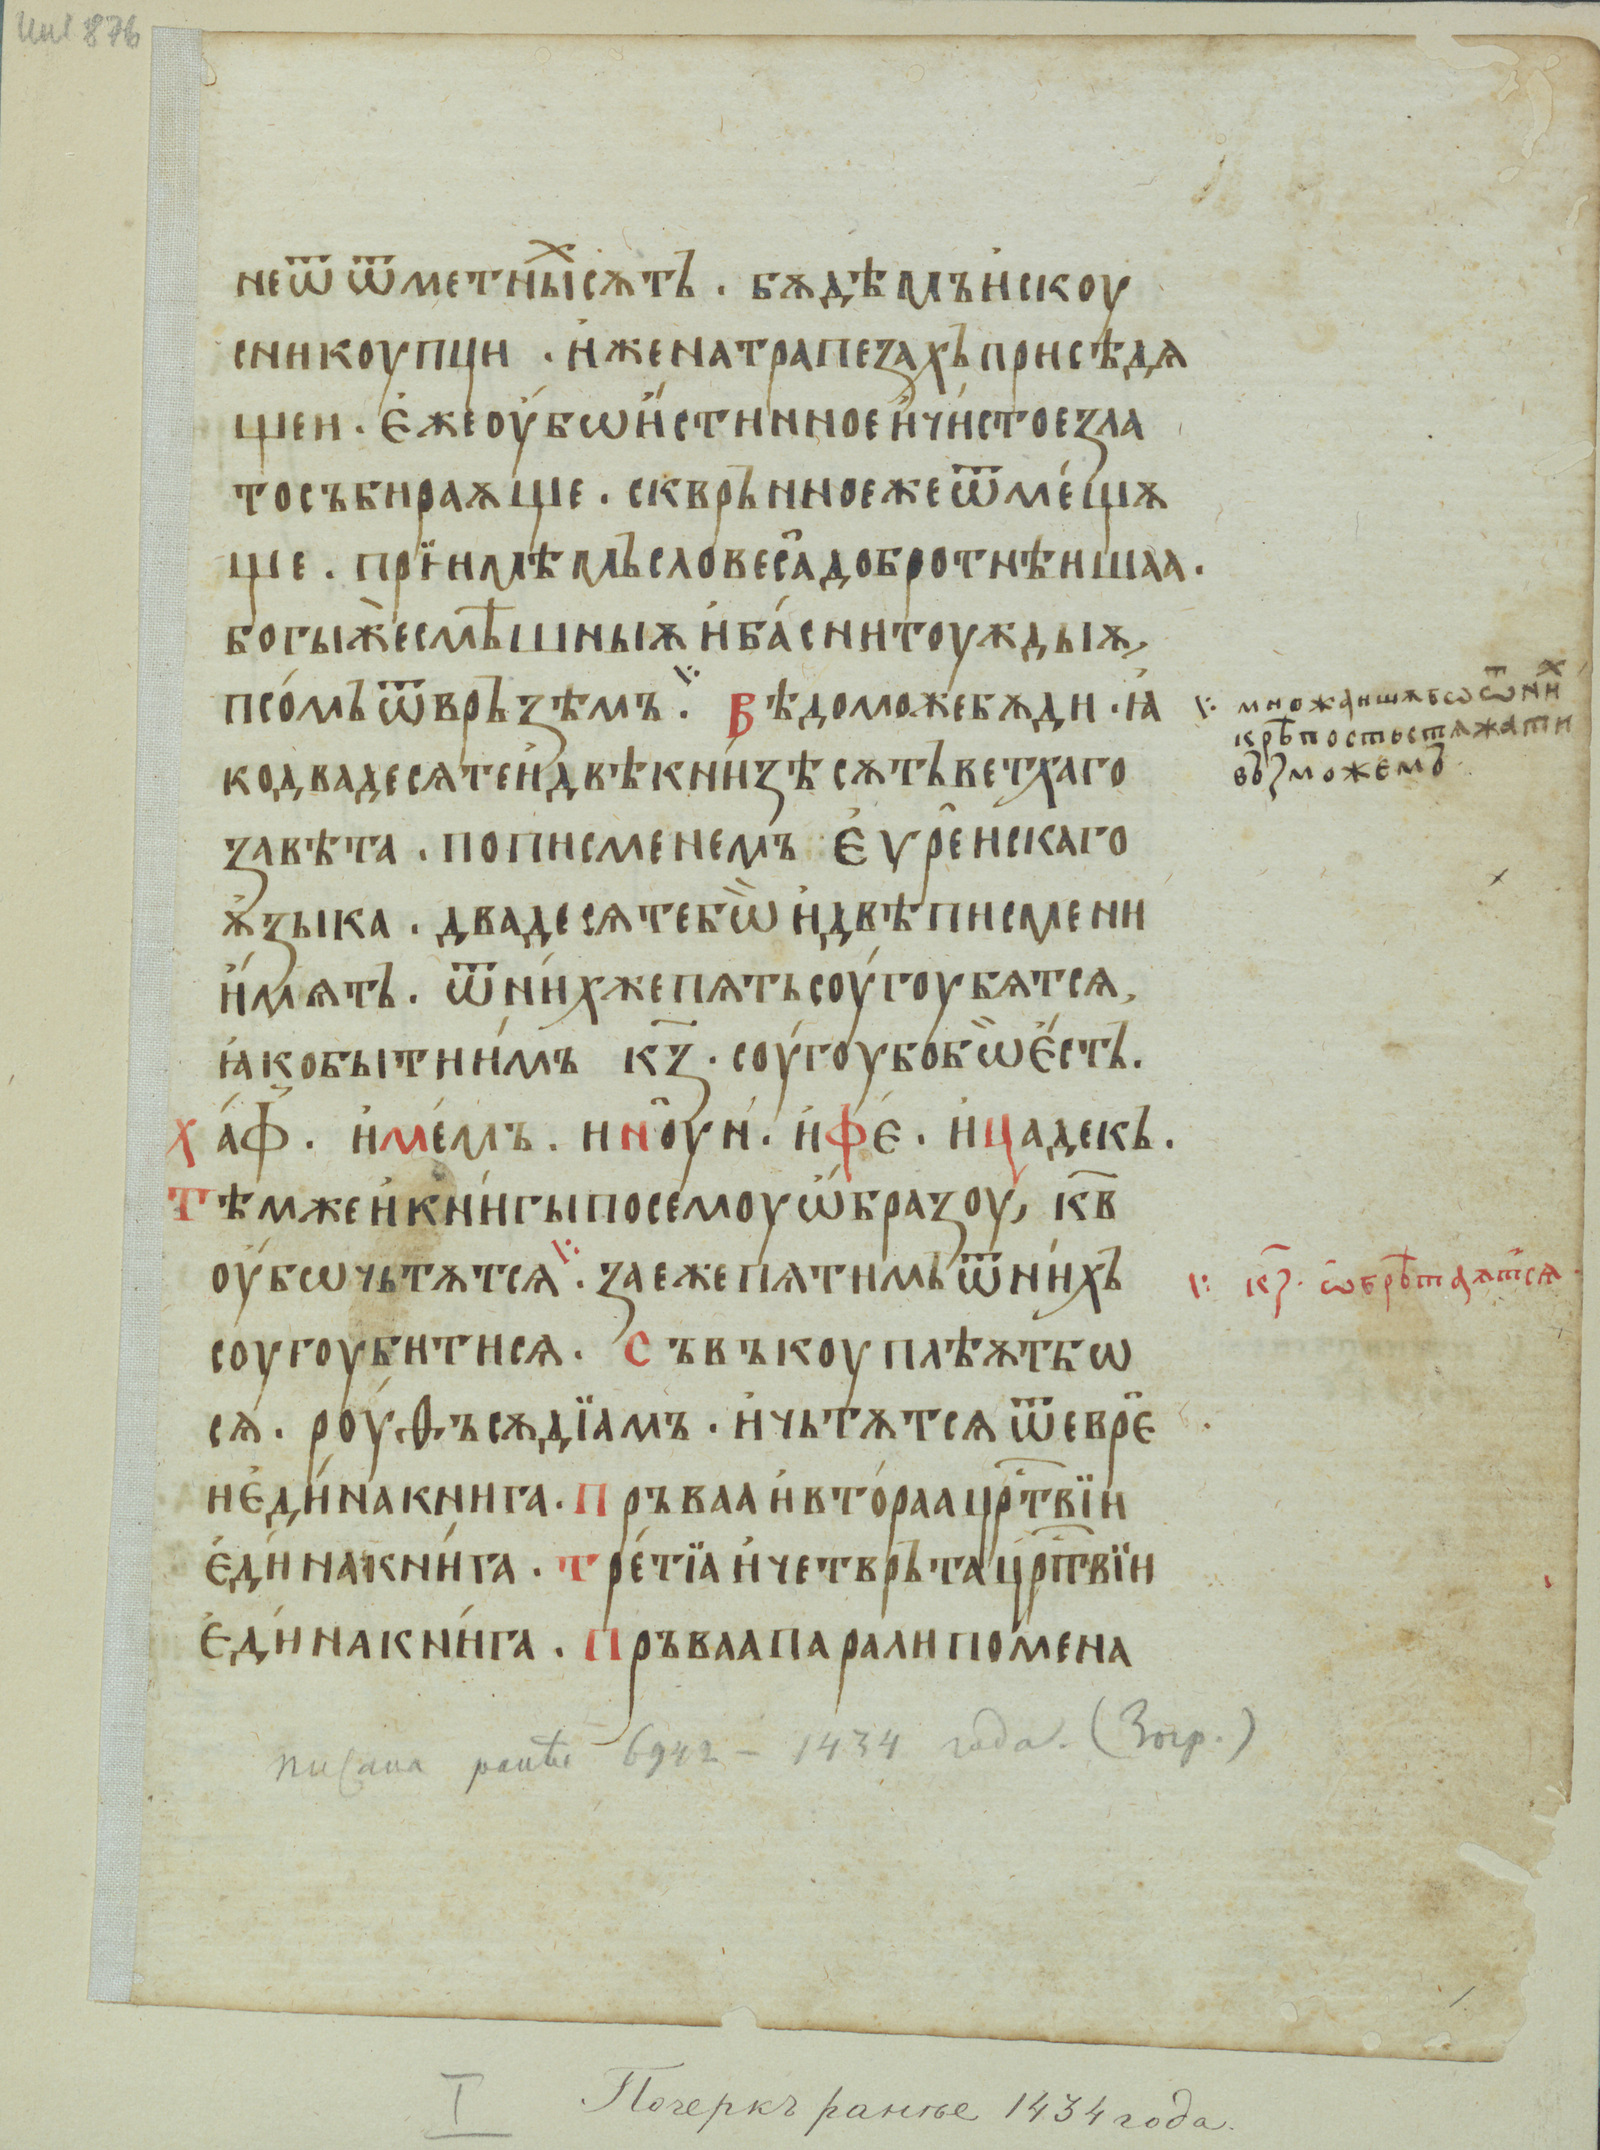 не ѿ ѿметныⷯ сѫтъ · бѫдѣмъ искоу
сни коупци · и҆же на трапезахъ присѣдѧ
щеи · є҆же оу҆бѡ и҆стинное и҆ чи́стое зла
то събираѫще · сквръ́нное же ѿме́щѫ
ще · прїимѣмъ словеса̑ добротнѣишаа ·
богы же смѣшныѫ и҆ ба́сни тоуждыѫ,
псо́мъ ѿвръзѣмъ ⁖ Вѣдомо же бѫди · ꙗ҆
ко двадесѧте и҆ двѣ кни́зѣ сѫтъ ветхаго
завѣта · по писменемъ є҆ѵре̑искаго
ѫ҆зыка · двадесѧте бѡ̀ и҆ двѣ писмени
и҆́мѫтъ · ѿ ни́хже пѧть соу́гоубѧтсѧ,
ꙗ҆ко быти и҆́мъ к҃з · соу́гоубо бѡ̀ є҆́стъ ·
Ха́ф · и҆ ме́мъ · и но̑ун · и҆ фе́ · и҆ цадекъ ·
Тѣмже и҆ кни́гы по семоу ѡ҆́бразоу, к҃в
оу҆́бѡ чьтѫтсѧ ⁖ за еже пѧтимь ѿ ни́хъ
соугоубитисѧ · Съвъкоуплѣѫтбѡ
сѧ · роу́ѳъ сѫдїамъ · и҆ чьтѫтсѧ ѿ евре̑
и є҆ди́на книга · Пръваа и҆ вто́раа црⷭ҇твїи
є҆ди́на кни́га · Тре́тїа и҆ четвръта црⷭ҇твїи
є҆ди́на кни́га · Пръваа паралипо́мена
⁖ множаишѫ бѡ ѿ ниⷯ
крѣпость стѧжати
въꙁможемъ
⁖ к҃з · ѡ҆брѣтаѫтсѧ ·
писана ранѣе 6942 – 1434 года. (Зогр.)
I Почеркъ ранѣе 1434 года.